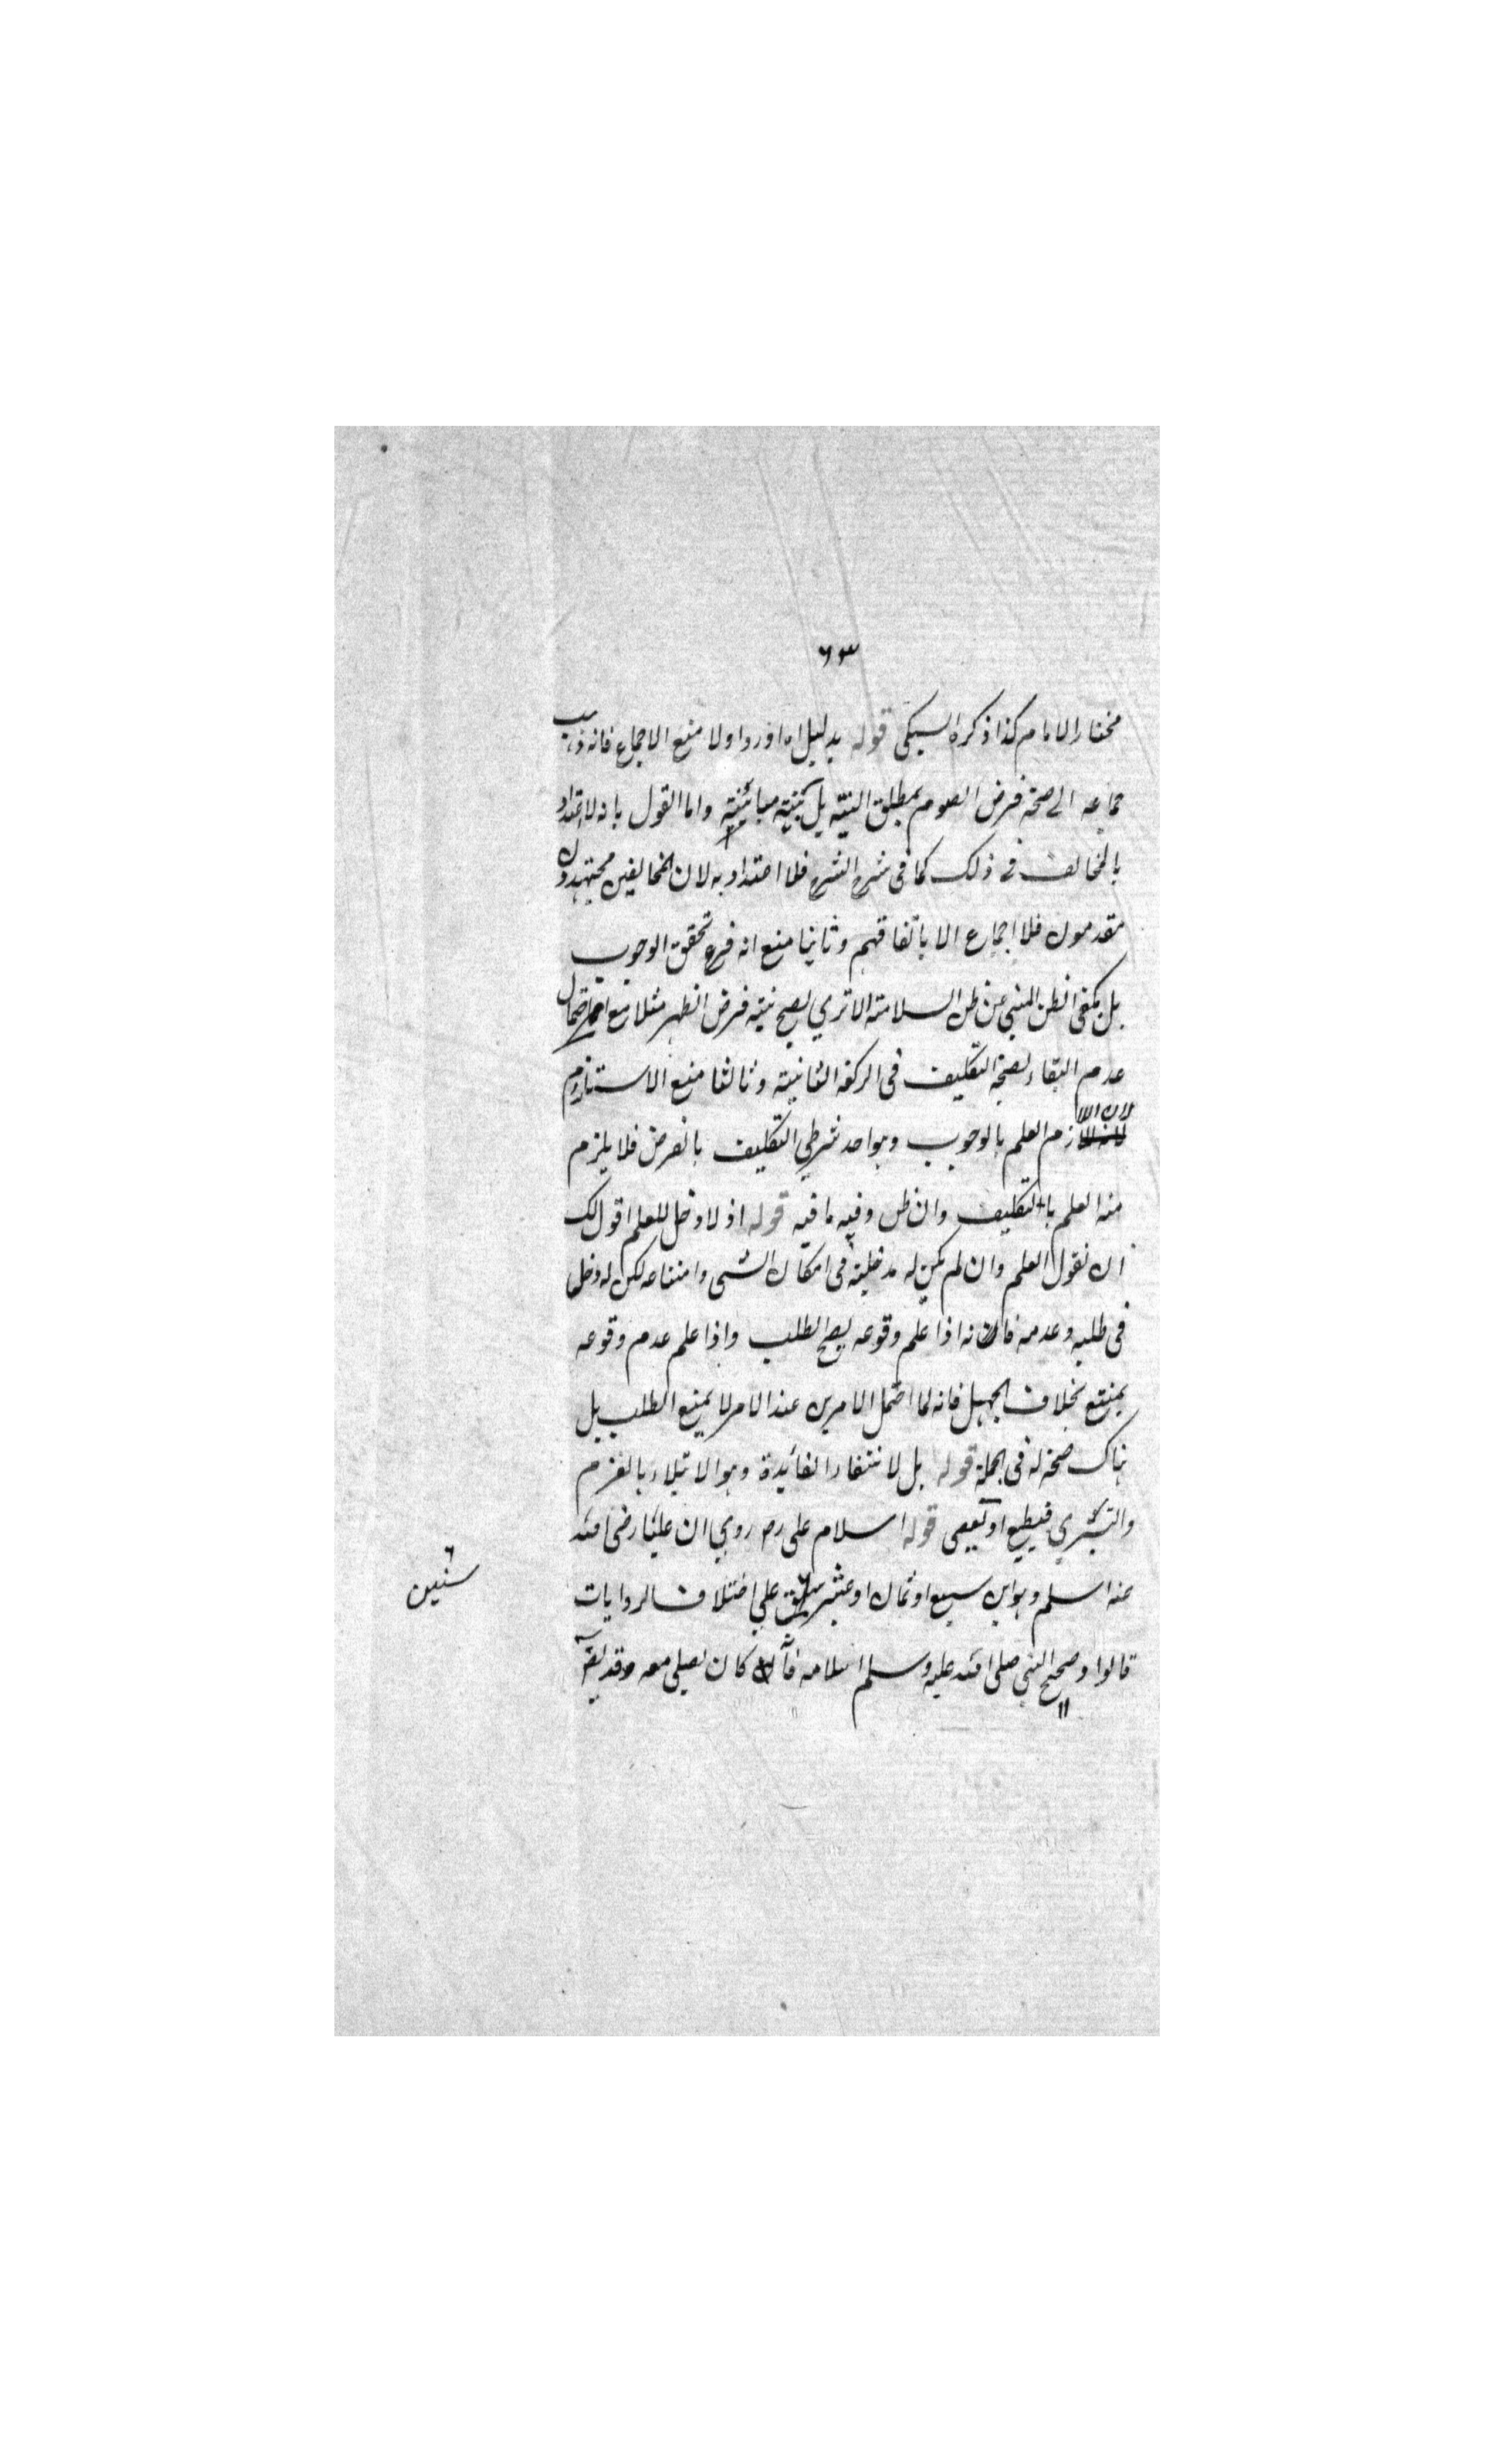 ٦٣
مختار الامام كذا ذكره السبكى قوله بدليل اه اورد اولا منع الاجماع فانه ذهب
جماعه الى صحة فرض الصوم بمطلق النية بل بنية مبائنة واما القول بانه لا اعتداد
بالمخالف فى ذلك كما فى شرح الشرح فلا اعتداد به لان المخالفين مجتهدون
مقدمون فلا اجماع الا باتفاقهم وثانيا منع انه فرع تحقق الوجوب
بل يكفى الظن المبنى عن ظن السلامة الا ترى يصح نية فرض الظهر مثلا مع احتمال
عدم البقاء بصفة التكليف فى الركعة الثانية وثالثا منع الاستلزام
لان اللازم العلم بالوجوب وهو احد شرطي التكليف بالفرض فلا يلزم
منه العلم بالتكليف وان ظن وفيه ما فيه قوله اذ لا دخل للعلم اقول لك
ان نقول العلم وان لم يكن له مدخلية فى امكان الشى وامتناعه لكن له دخل
فى طلبه وعدمه فانه اذا علم وقوعه يصح الطلب واذا علم عدم وقوعه
يمتنع بخلاف الجهل فانه لما احتمل الامرين عند الامر لا يمتنع الطلب بل
هناك صحة له فى الجملة قوله بل لانتفاء الفائدة وهو الابتلاء بالعزم
والبشرى فيطيع او يعصى قوله اسلام على رض روي ان عليا رضى الله
عنه اسلم وهو ابن سبع او ثمان او عشر على اختلاف الروايات
سنين
قالوا وصحح النبي صلى الله عليه وسلم اسلامه فانه كان يصلى معه وقد يقره